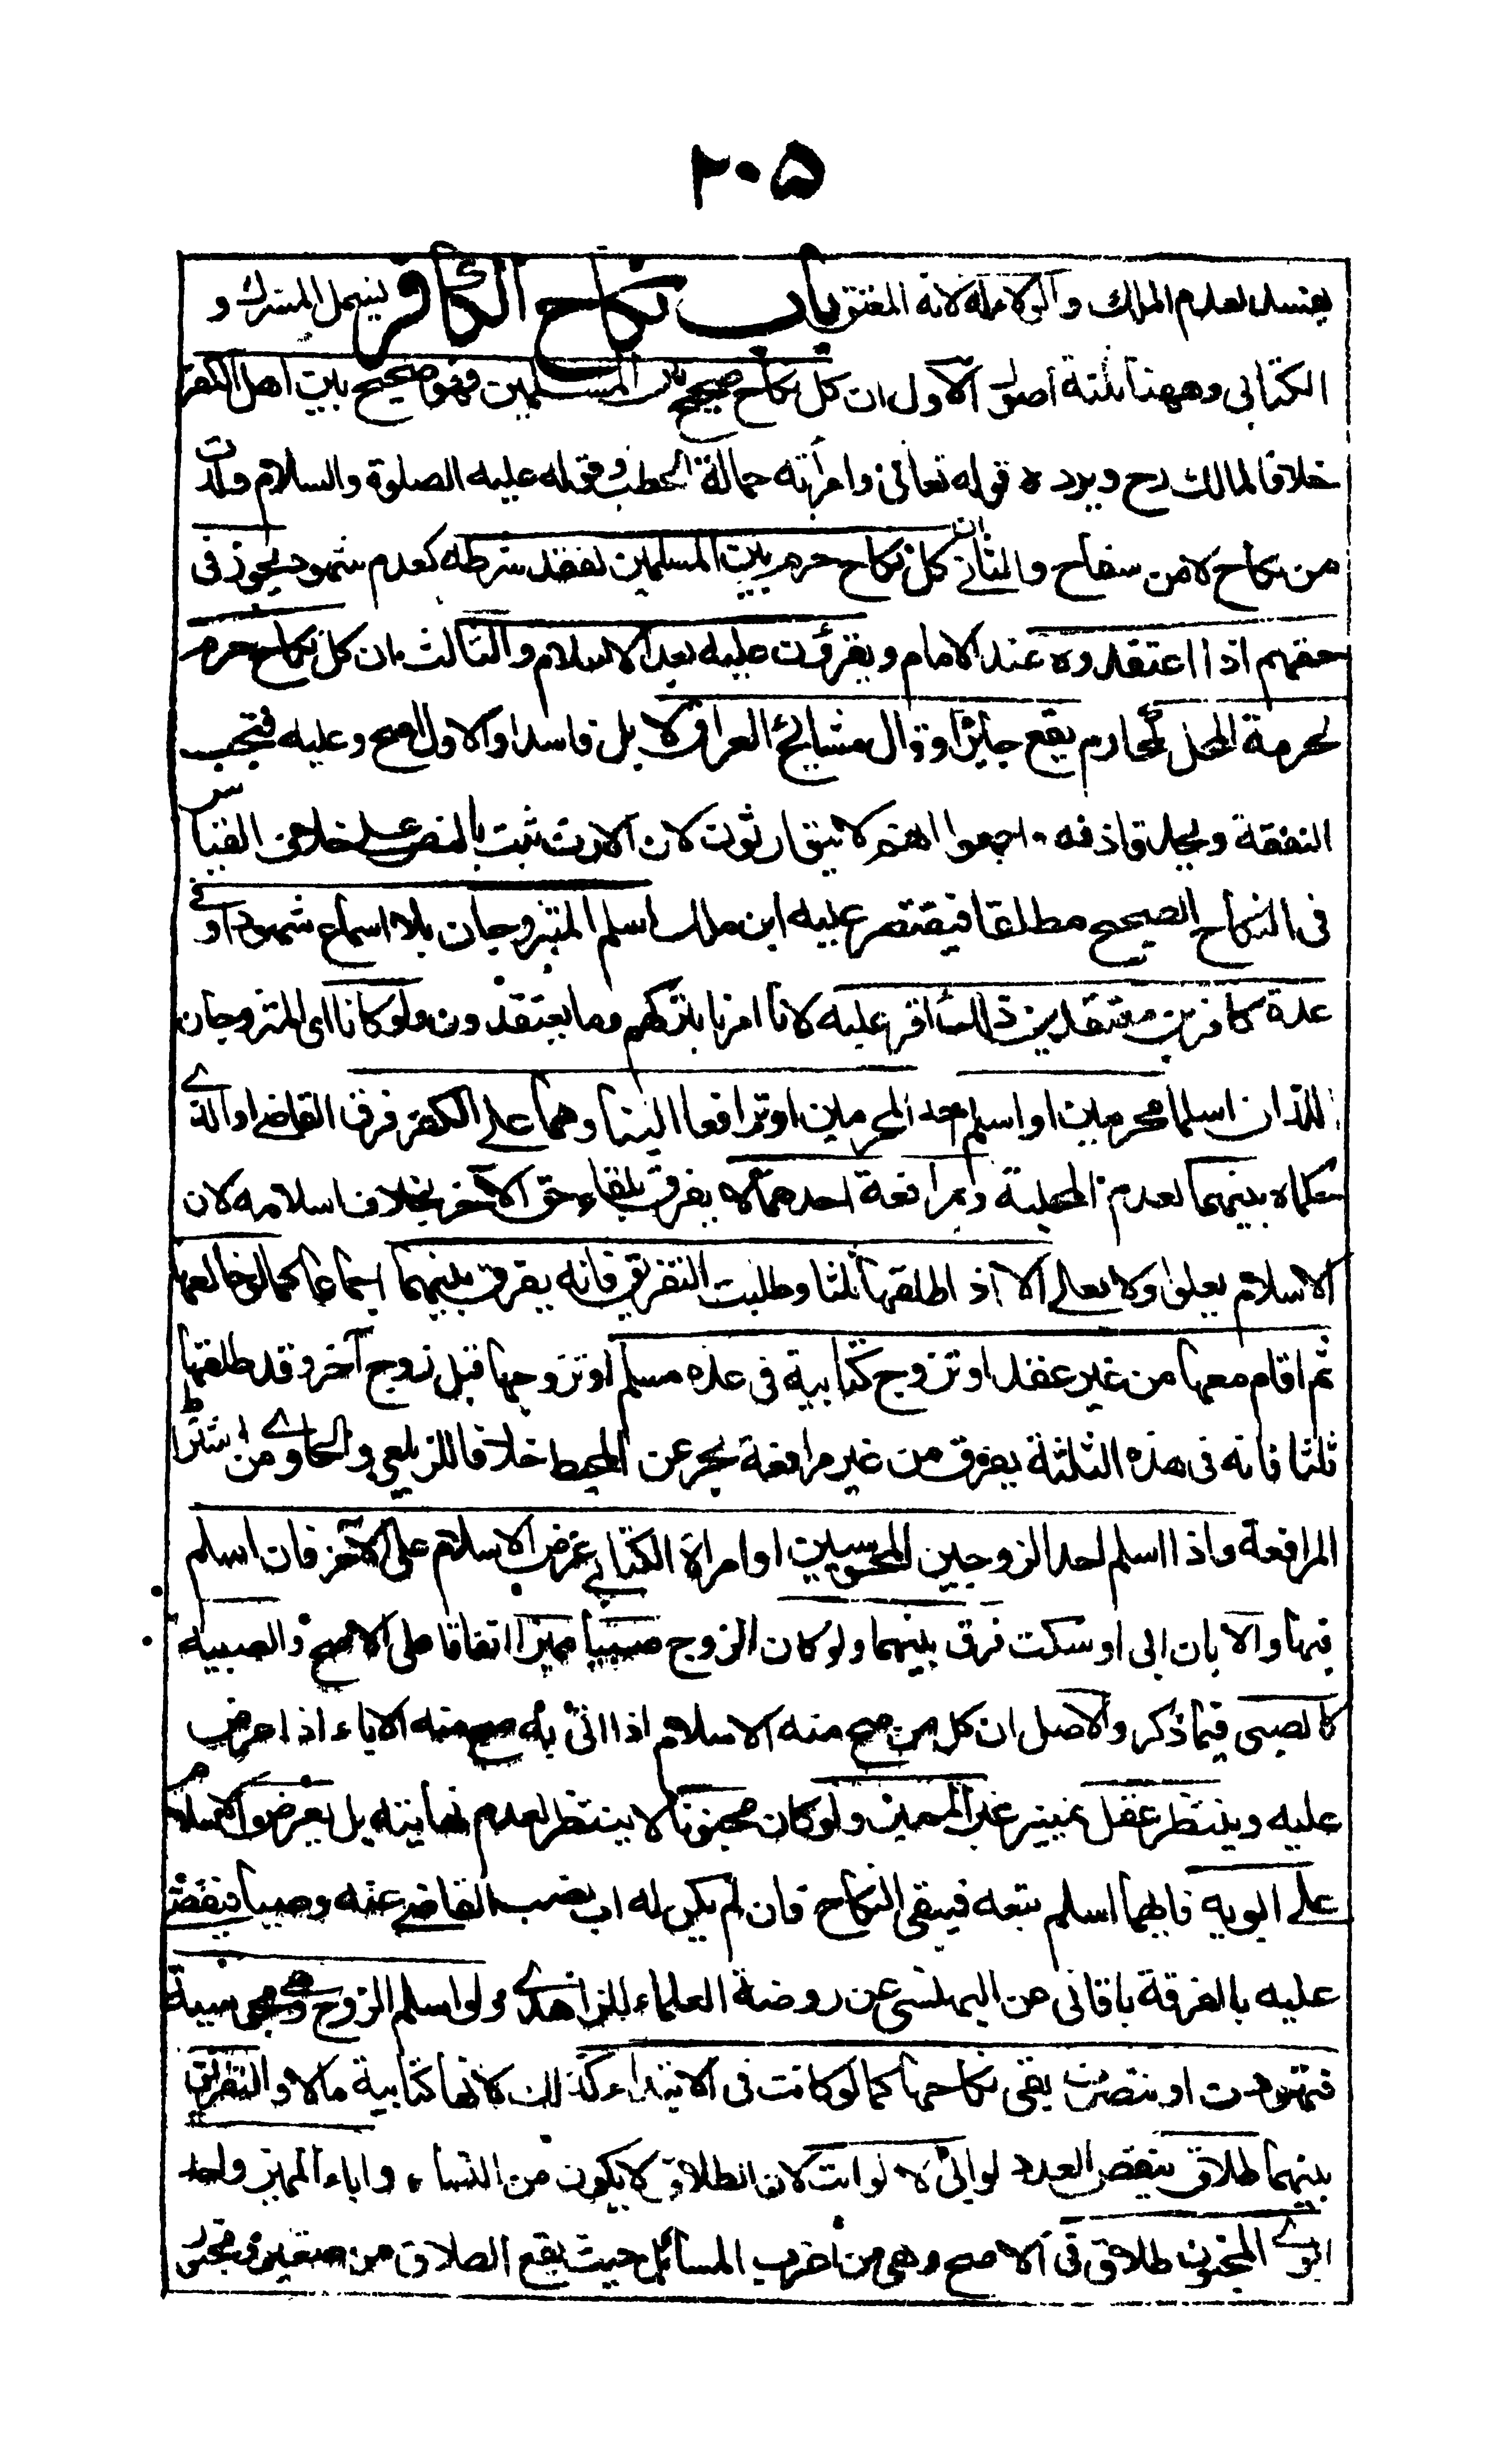 ٢٠٥
يفسد لعدم الملك والولاء له لانه المعتق باب نكاح الكافر يشمل المشرك و
الكتابي وههنا ثلثة اصول الاول ان كل نكاح صحيح بين المسلمين فهو صحيح بين اهل الكفر
خلافا لمالك رح ويرده قوله تعالى وامرأته حمالة الحطب وقوله عليه الصلوة والسلام ولدت
من نكاح لا من سفاح والثاني ان كل نكاح حرم بين المسلمين لفقد شرطه كعدم شهود يجوز في
حقهم اذا اعتقدوه عند الامام ويقرون عليه بعد الاسلام والثالث ان كل نكاح حرم
لحرمة المحل كمحارم يقع جايزا وقال مشايخ العراق لا بل فاسدا والاول اصح وعليه فتجب
النفقة ويحد قاذفه واجمعوا انهم لا يتوارثون لان الارث ثبت بالنص على خلاف القياس
في النكاح الصحيح مطلقا فيقتصر عليه ابن ملك اسلم المتزوجان بلا سماع شهود او في
عدة كافر معتقدين ذلك اقرا عليه لانا امرنا بتركهم وما يعتقدون ولو كانا اي المتزوجان
اللذان اسلما محرمين او اسلم احد المحرمين او ترافعا الينا وهما على الكفر فرق القاضي او الذي
حكماه بينهما لعدم المحلية وبمرافعة احدهما لا يفرق لبقاء حق الآخر بخلاف اسلامه لان
الاسلام يعلو ولا يعلى الا اذا طلقها ثلثا وطلبت التفريق فانه يفرق بينهما اجماعا كما لو خالعها
ثم اقام معها من غير عقد او تزوج كتابية في عدة مسلم او تزوجها قبل زوج آخر وقد طلقها
ثلثا فانه في هذه الثلثة يفرق من غير مرافعة بحر عن المحيط خلافا للزيلعي والحاوي من اشتراط
المرافعة واذا اسلم احد الزوجين المجوسيين او امرأة الكتابي عرض الاسلام على الآخر فان اسلم
فبها والا بان ابى او سكت فرق بينهما ولو كان الزوج صبيا مميزا اتفاقا على الاصح والصبية
كالصبي فيما ذكر والاصل ان كل من صح منه الاسلام اذا اتى به صح منه الاباء اذا عرض
عليه وينتظر عقل تمييز غير المميز ولو كان مجنونا لا ينتظر لعدم نهايته بل يعرض الاسلام
على ابويه فايهما اسلم تبعه فيبقى النكاح فان لم يكن له اب نصب القاضي عنه وصيا فيقضي
عليه بالفرقة باقاني عن البهنسي عن روضة العلماء للزاهدي ولو اسلم الزوج وهي مجوسية
فتهودت او تنصرت بقى نكاحها كما لو كانت في الابتداء كذلك لانها كتابية مآلا والتفريق
بينهما طلاق ينقص العدد لو ابى لا لو ابت لان الطلاق لا يكون من النساء واباء المميز واحد
ابوي المجنون طلاق في الاصح وهي من اغرب المسائل حيث يقع الطلاق من صغير ومجنون